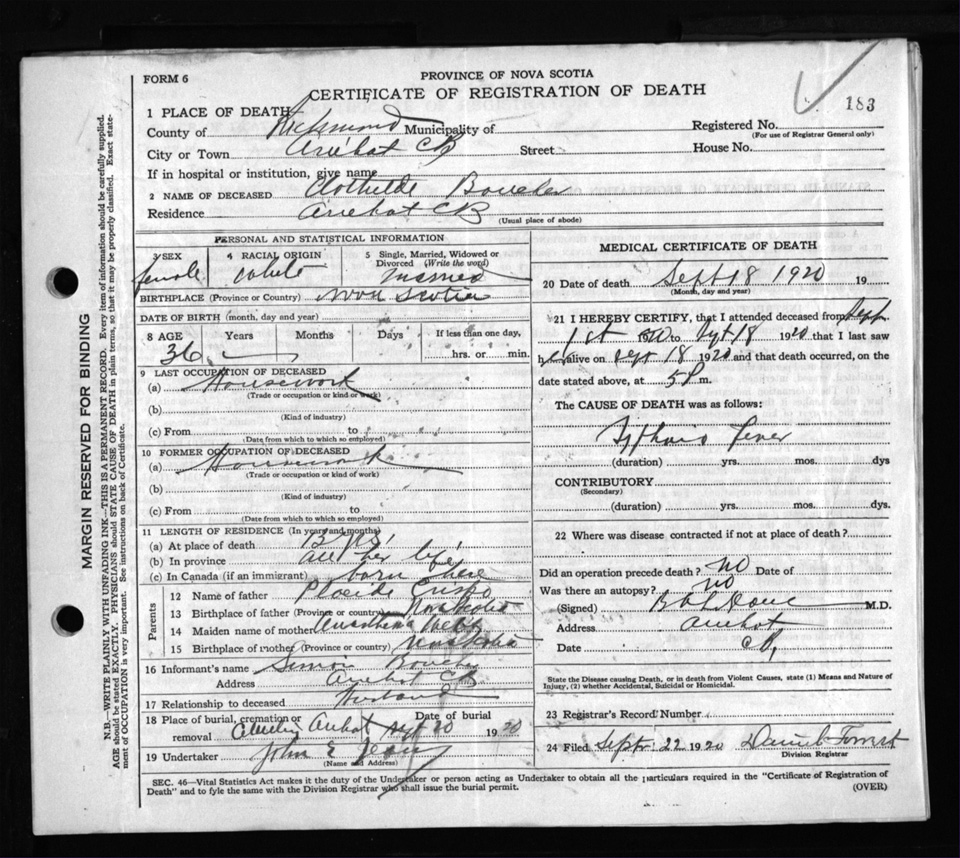 FORM 6
PROVINCE OF NOVA SCOTIA
CERTIFICATE OF REGISTRATION OF DEATH
183
1 PLACE OF DEATH
County of Richmond Municipality of
Registered No.
(For use of Registrar General only)
City or Town Arichat CB Street House No.
If in hospital or institution, give name
2 NAME OF DECEASED Clothilde Boucher
Residence Arichat CB
(Usual place of abode)
PERSONAL AND STATISTICAL INFORMATION
3 SEX female
4 RACIAL ORIGIN White
5 Single, Married, Widowed or Divorced (Write the word) married
BIRTHPLACE (Province or Country) Nova Scotia
DATE OF BIRTH (month, day and year)
8 AGE Years Months Days If less than one day,
36 hrs. or min.
9 LAST OCCUPATION OF DECEASED
(a) Housework
(Trade or occupation or kind of work)
(b)
(Kind of industry)
(c) From to
(Date from which to which so employed)
10 FORMER OCCUPATION OF DECEASED
(a) Housework
(Trade or occupation or kind of work)
(b)
(Kind of industry)
(c) From to
(Date from which to which so employed)
11 LENGTH OF RESIDENCE (In years and months)
(a) At place of death
(b) In province all her life
(c) In Canada (if an immigrant) born here
Parents
12 Name of father Placide
13 Birthplace of father (Province or country) Nova Scotia
14 Maiden name of mother
15 Birthplace of mother (Province or country) Nova Scotia
16 Informant's name Simon Boucher
Address Arichat CB
17 Relationship to deceased Husband
18 Place of burial, cremation or removal Arichat Date of burial Sept 20 1920
19 Undertaker John E
(Name and Address)
MEDICAL CERTIFICATE OF DEATH
20 Date of death Sept 18 1920 19
(Month, day and year)
21 I HEREBY CERTIFY, that I attended deceased from Sept
1st 1920 to Sept 18 1920 that I last saw
her alive on Sept 18 1920 and that death occurred, on the
date stated above, at 5 P m.
The CAUSE OF DEATH was as follows:
Typhoid fever
(duration) yrs. mos. dys
CONTRIBUTORY
(Secondary)
(duration) yrs. mos. dys.
22 Where was disease contracted if not at place of death?
Did an operation precede death? No Date of
Was there an autopsy? No
(Signed) M.D.
Address Arichat
Date CB
State the Disease causing Death, or in death from Violent Causes, state (1) Means and Nature of
Injury, (2) whether Accidental, Suicidal or Homicidal.
23 Registrar's Record Number
24 Filed Sept 22 1920
Division Registrar
SEC. 46—Vital Statistics Act makes it the duty of the Undertaker or person acting as Undertaker to obtain all the particulars required in the "Certificate of Registration of
Death" and to fyle the same with the Division Registrar who shall issue the burial permit.
(OVER)
MARGIN RESERVED FOR BINDING
N.B.—WRITE PLAINLY WITH UNFADING INK—THIS IS A PERMANENT RECORD. Every item of information should be carefully supplied.
AGE should be stated EXACTLY. PHYSICIANS should STATE CAUSE OF DEATH in plain terms, so that it may be properly classified. Exact state-
ment of OCCUPATION is very important. See instructions on back of Certificate.